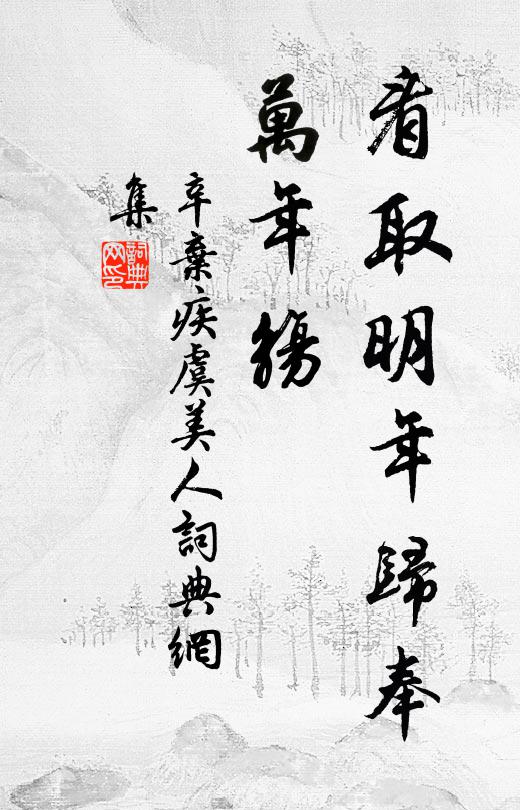 看取明年歸奉
萬年觴
辛棄疾虞美人詞典網
集
詞典
网印